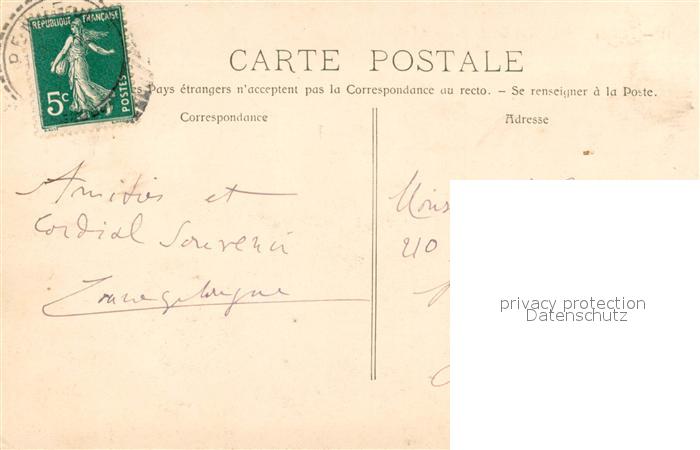 REPUBLIQUE FRANÇAISE
5c
POSTES
CARTE POSTALE
Pays étrangers n'acceptent pas la Correspondance au recto. – Se renseigner à la Poste.
Correspondance
Adresse
Amitiés et
Cordial Souvenir
210
privacy protection
Datenschutz